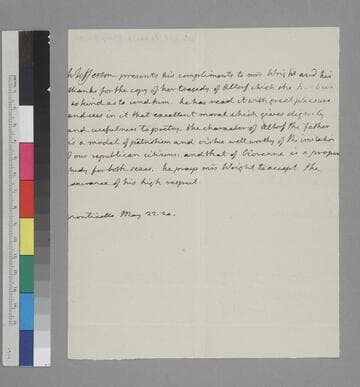 Th Jefferson presents his compliments to mrs Wright and his
thanks for the copy of her tragedy of Altorf which she has been
so kind as to send him. he has read it with great pleasure
and sees in it that excellent moral which gives dignity
and usefulness to poetry. the character of Altorf the father
is a model of patriotism and virtue well worthy of the imitation
of our republican citizens; and that of Giovanna is a proper
study for both sexes. he prays mrs Wright to accept the
assurance of his high respect.
Monticello May 22. 20.